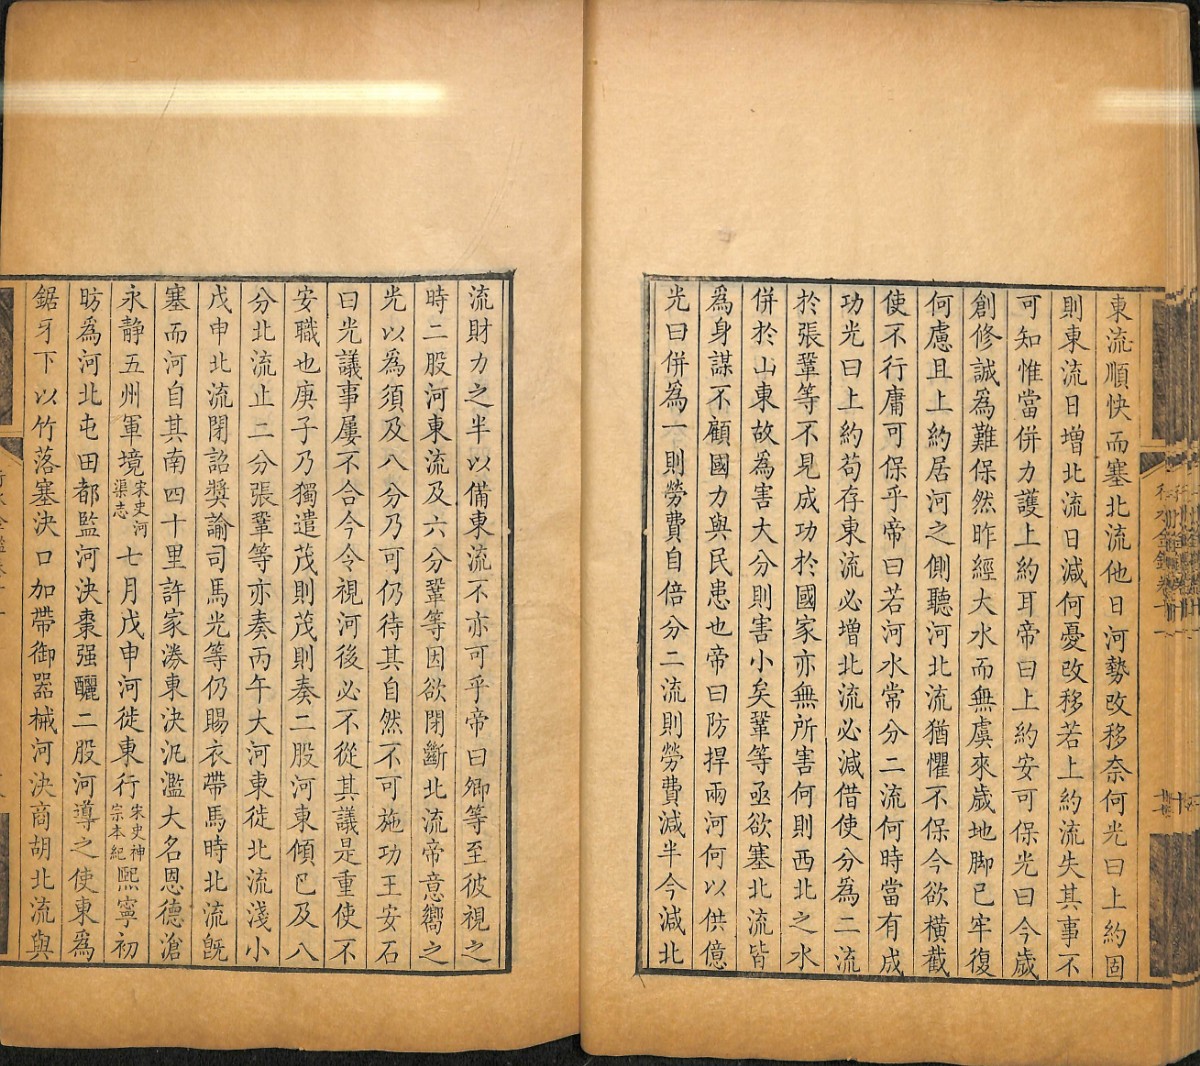 東流順快而塞北流他日河勢改移奈何光曰上約固
則東流日增北流日減何憂改移若上約流失其事不
可知惟當併力護上約耳帝曰上約安可保光曰今歲
創修誠爲難保然昨經大水而無虞來歲地脚已牢復
何慮且上約居河之側聽河北流猶懼不保今欲橫截
使不行庸可保乎帝曰若河水常分二流何時當有成
功光曰上約苟存東流必增北流必減借使分爲二流
於張鞏等不見成功於國家亦無所害何則西北之水
併於山東故爲害大分則害小矣鞏等亟欲塞北流皆
爲身謀不顧國力與民患也帝曰防捍兩河何以供億
光曰併爲一則勞費自倍分二流則勞費減半今減北
流財力之半以備東流不亦可乎帝曰卿等至彼視之
時二股河東流及六分鞏等因欲閉斷北流帝意嚮之
光以爲須及八分乃可仍待其自然不可施功王安石
曰光議事屢不合今令視河後必不從其議是重使不
安職也庚子乃獨遣茂則茂則奏二股河東傾巳及八
分北流止二分張鞏等亦奏丙午大河東徙北流淺小
戊申北流閉詔獎諭司馬光等仍賜衣帶馬時北流旣
塞而河自其南四十里許家港東決汎濫大名恩德滄
永静五州軍境宋史河渠志七月戊申河徙東行宋史神宗本紀熙寧初
昉爲河北屯田都監河決棗强釃二股河導之使東爲
鋸牙下以竹落塞決口加帶御器械河決商胡北流與